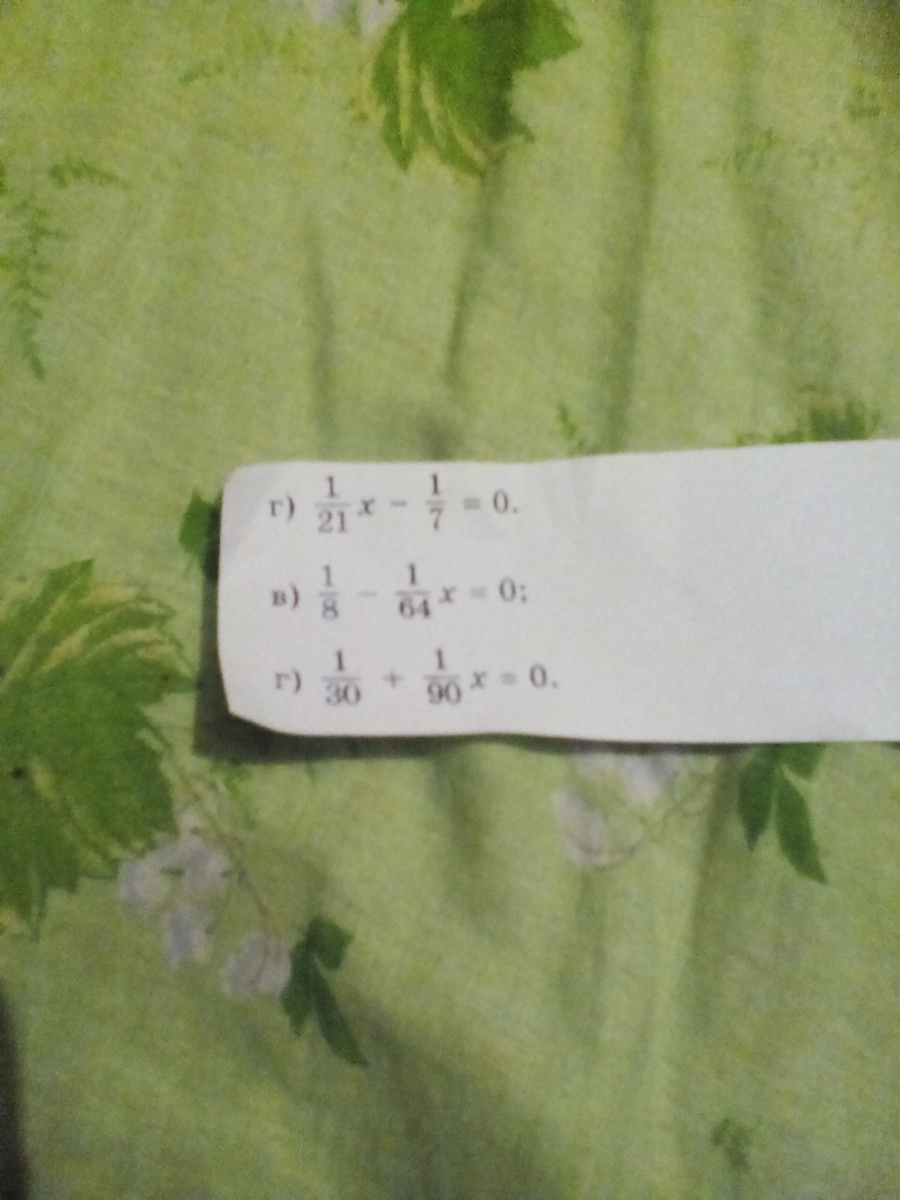 г) 1/21 x − 1/7 = 0.
в) 1/8 − 1/64 x = 0;
г) 1/30 + 1/90 x = 0.